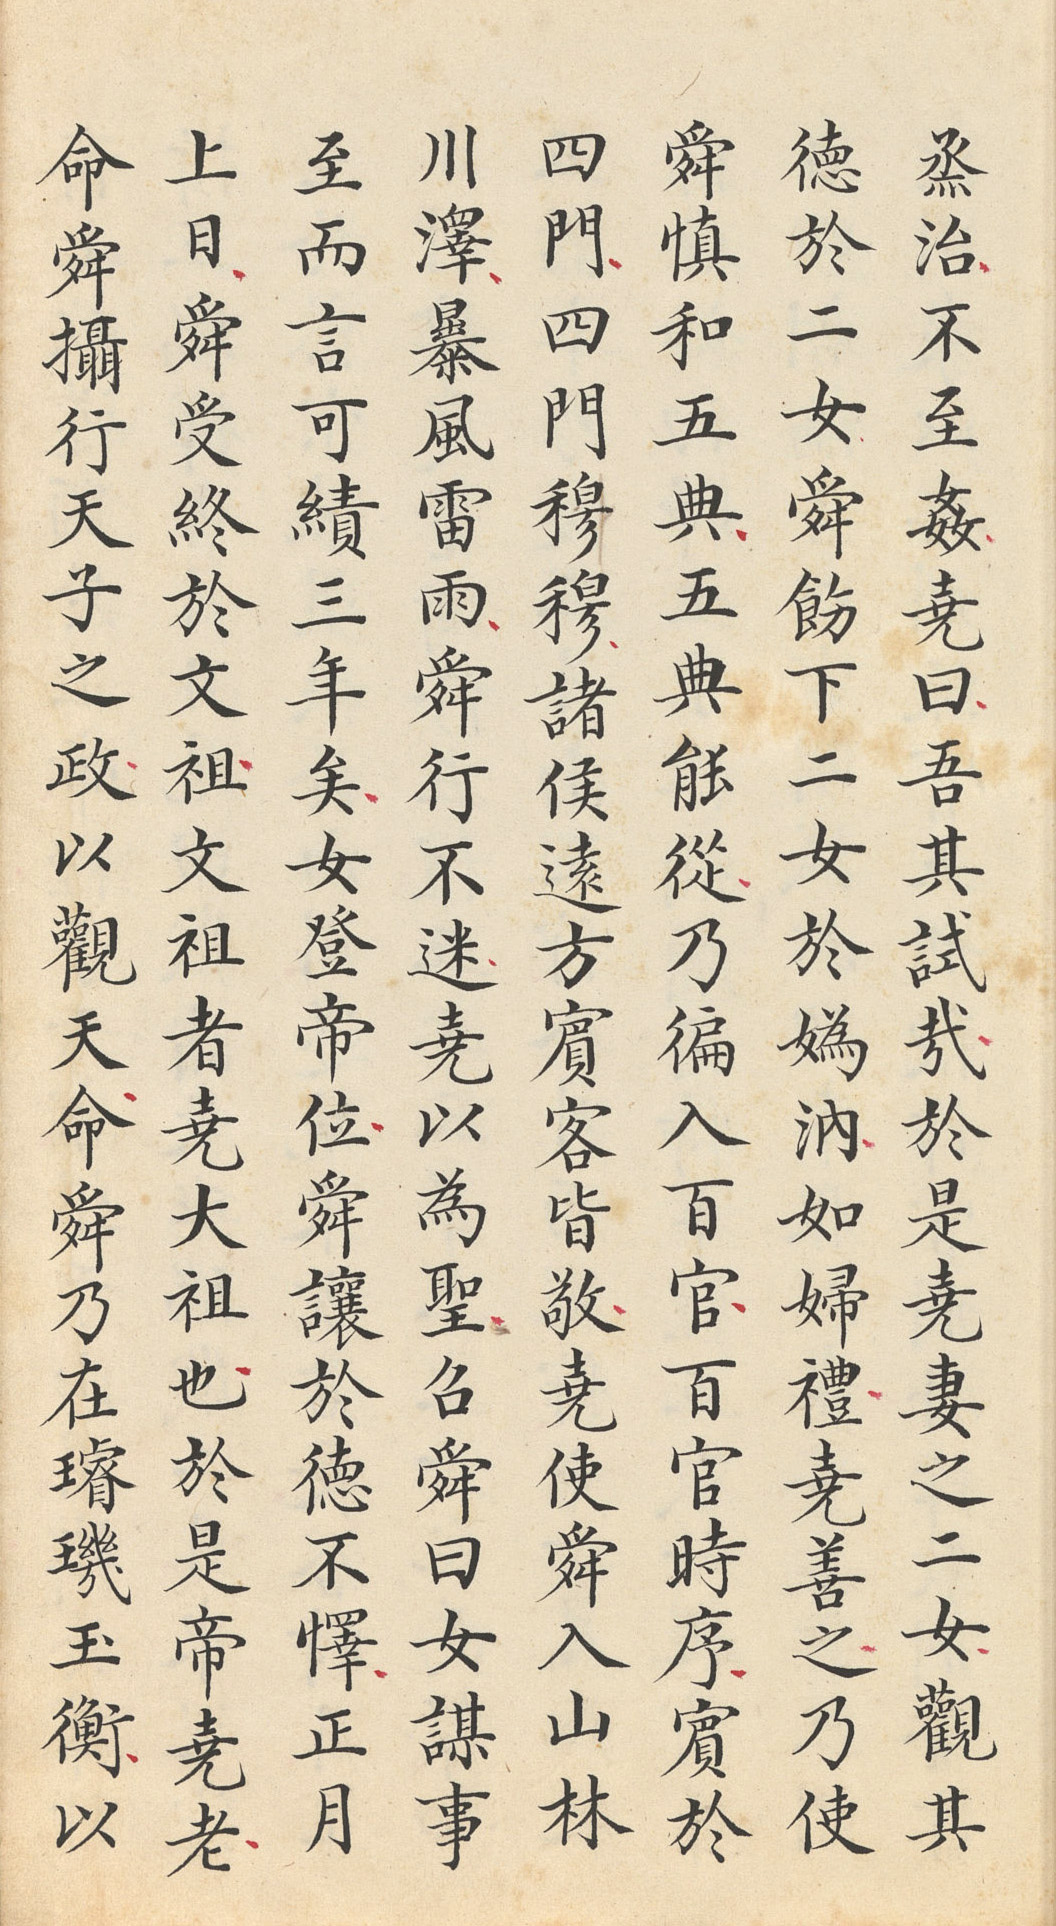 烝治不至姦堯曰吾其試哉於是堯妻之二女觀其
德於二女舜飭下二女於嬀汭如婦禮堯善之乃使
舜慎和五典五典能從乃徧入百官百官時序賓於
四門四門穆穆諸侯遠方賓客皆敬堯使舜入山林
川澤暴風雷雨舜行不迷堯以為聖召舜曰女謀事
至而言可績三年矣女登帝位舜讓於德不懌正月
上日舜受終於文祖文祖者堯大祖也於是帝堯老
命舜攝行天子之政以觀天命舜乃在璿璣玉衡以